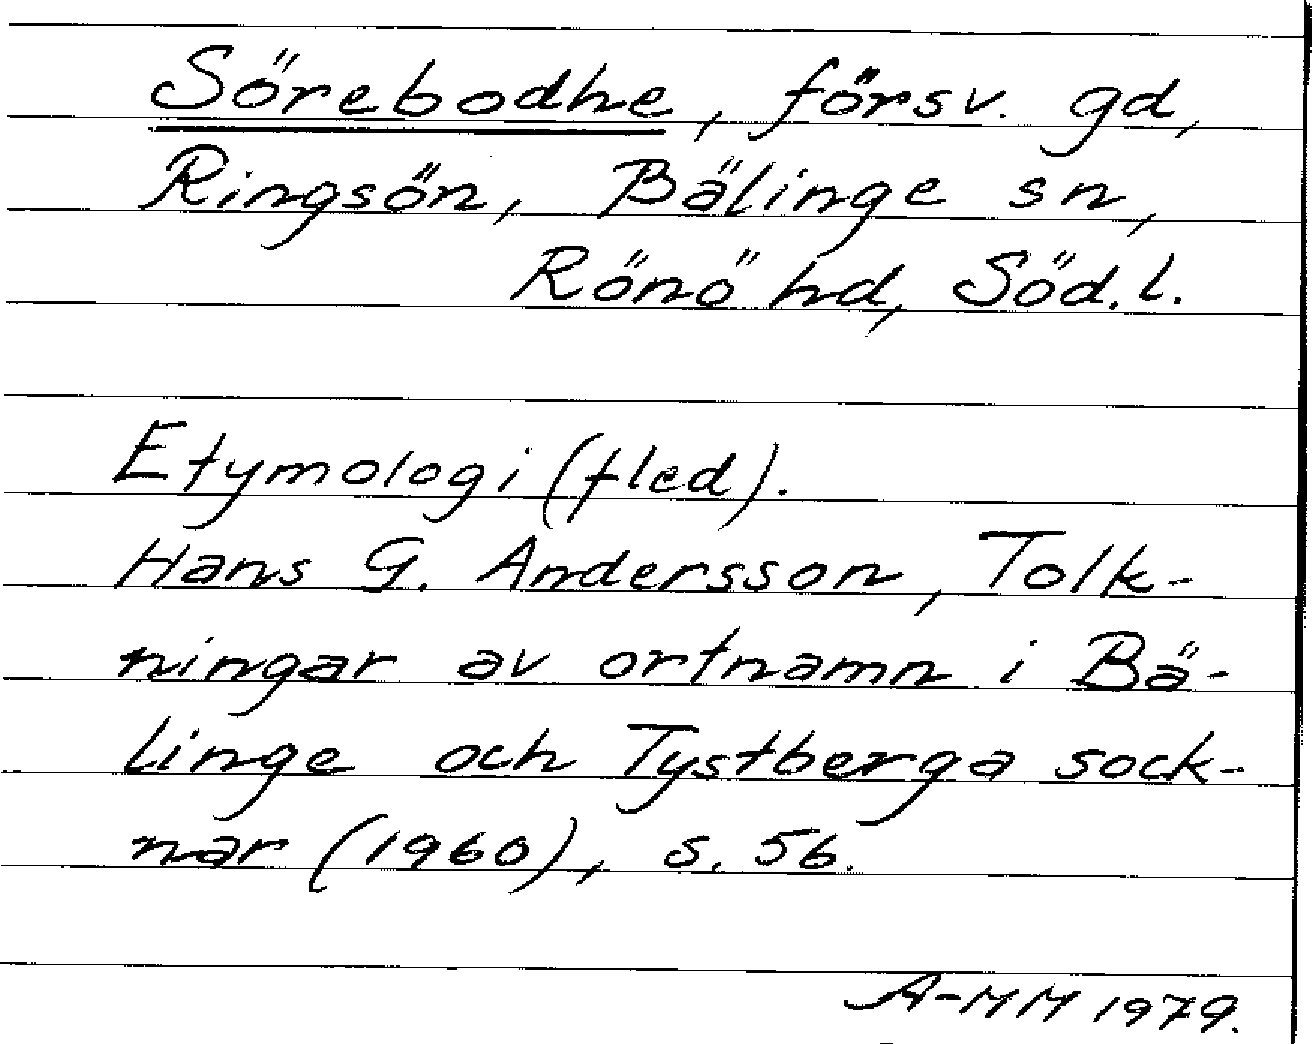 Sörebodhe, försv. gd,
Ringsön, Bälinge sn,
Rönö hd, Söd.l.
Etymologi (fled).
Hans G. Andersson, Tolk-
ningar av ortnamn i Bä-
linge och Tystberga sock-
nar (1960), s. 56.
A-MM 1979.